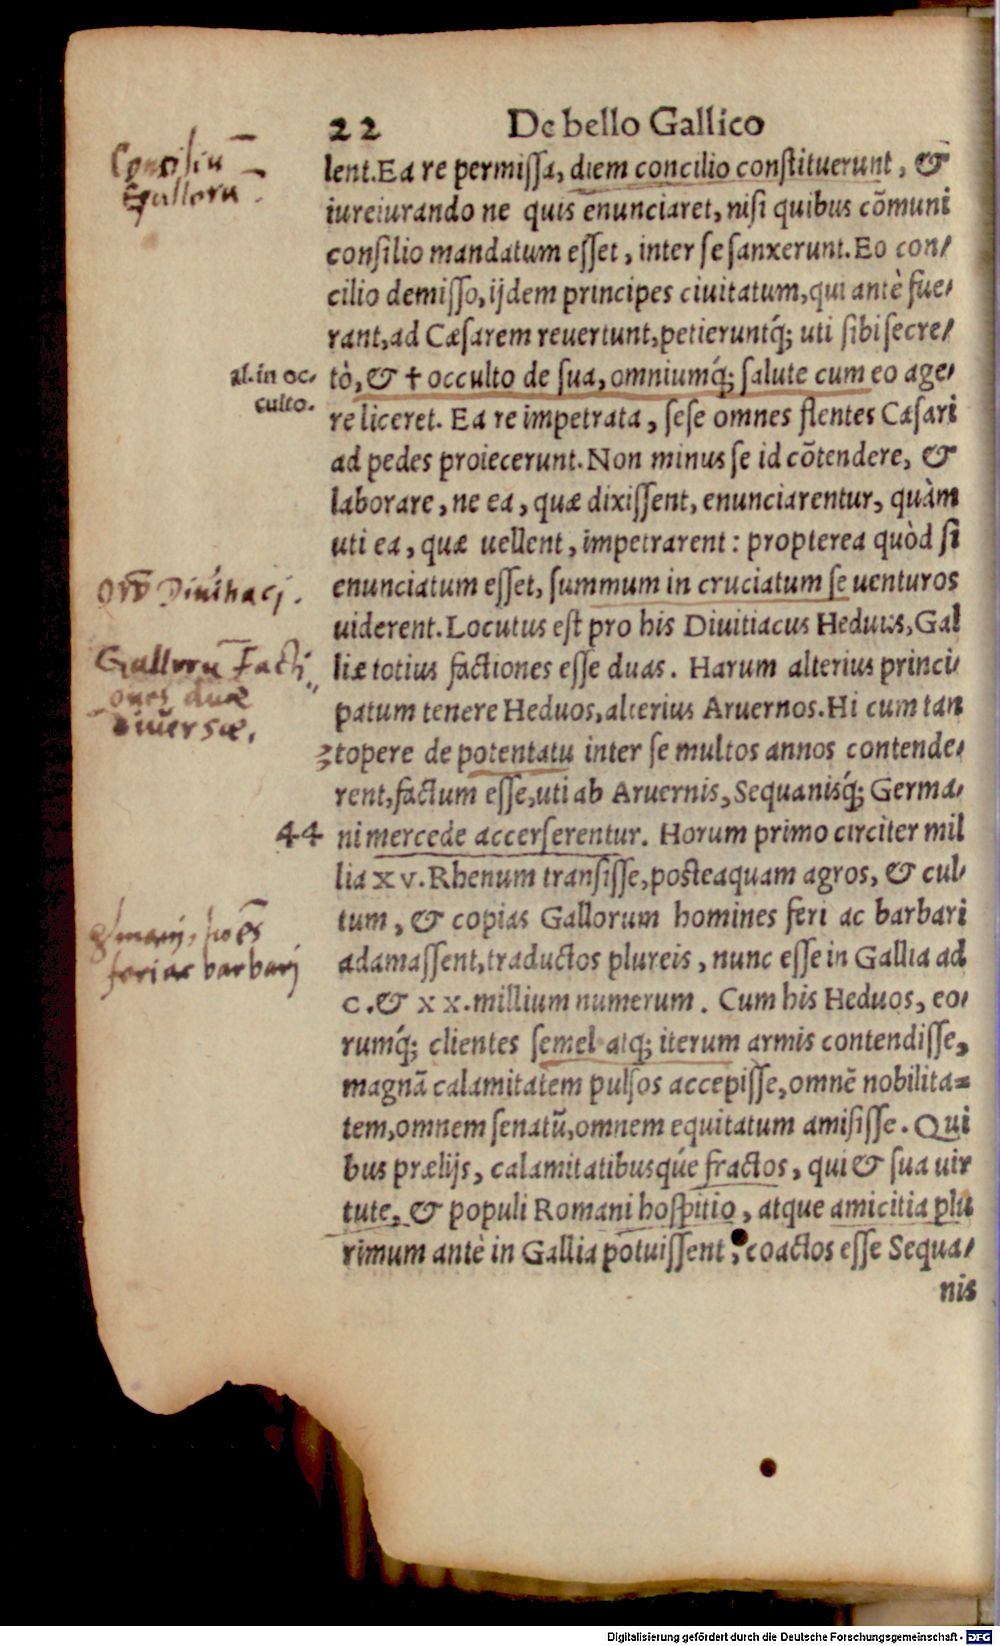 22 De bello Gallico
Conciliū
Gallorū.
lent. Ea re permissa, diem concilio constituerunt, &
iureiurando ne quis enunciaret, nisi quibus cōmuni
consilio mandatum esset, inter se sanxerunt. Eo con/
cilio demisso, ijdem principes ciuitatum, qui antè fue/
rant, ad Cæsarem reuertunt, petieruntq́; uti sibi secre/
al. in oc/
culto.
tò, & † occulto de sua, omniumq́; salute cum eo age/
re liceret. Ea re impetrata, sese omnes flentes Cæsari
ad pedes proiecerunt. Non minus se id cōtendere, &
laborare, ne ea, quæ dixissent, enunciarentur, quàm
uti ea, quæ uellent, impetrarent: propterea quòd si
Diuithacj.
enunciatum esset, summum in cruciatum se uenturos
uiderent. Locutus est pro his Diuitiacus Heduus, Gal
Gallorū Facti
ones duæ
diuersæ.
liæ totius factiones esse duas. Harum alterius princi/
patum tenere Heduos, alterius Aruernos. Hi cum tan
topere de potentatu inter se multos annos contende/
rent, factum esse, uti ab Aruernis, Sequanisq́; Germa/
44 ni mercede accerserentur. Horum primo circiter mil
lia xv. Rhenum transisse, posteaquam agros, & cul/
tum, & copias Gallorum homines feri ac barbari
feri ac barbarj
adamassent, traductos plureis, nunc esse in Gallia ad
c. & xx. millium numerum. Cum his Heduos, eo/
rumq́; clientes semel atq; iterum armis contendisse,
magnā calamitatem pulsos accepisse, omnē nobilita=
tem, omnem senatū, omnem equitatum amisisse. Qui
bus prælijs, calamitatibusq́ue fractos, qui & sua uir
tute, & populi Romani hospitio, atque amicitia plu
rimum antè in Gallia potuissent, coactos esse Sequa/
nis
Digitalisierung gefördert durch die Deutsche Forschungsgemeinschaft - DFG